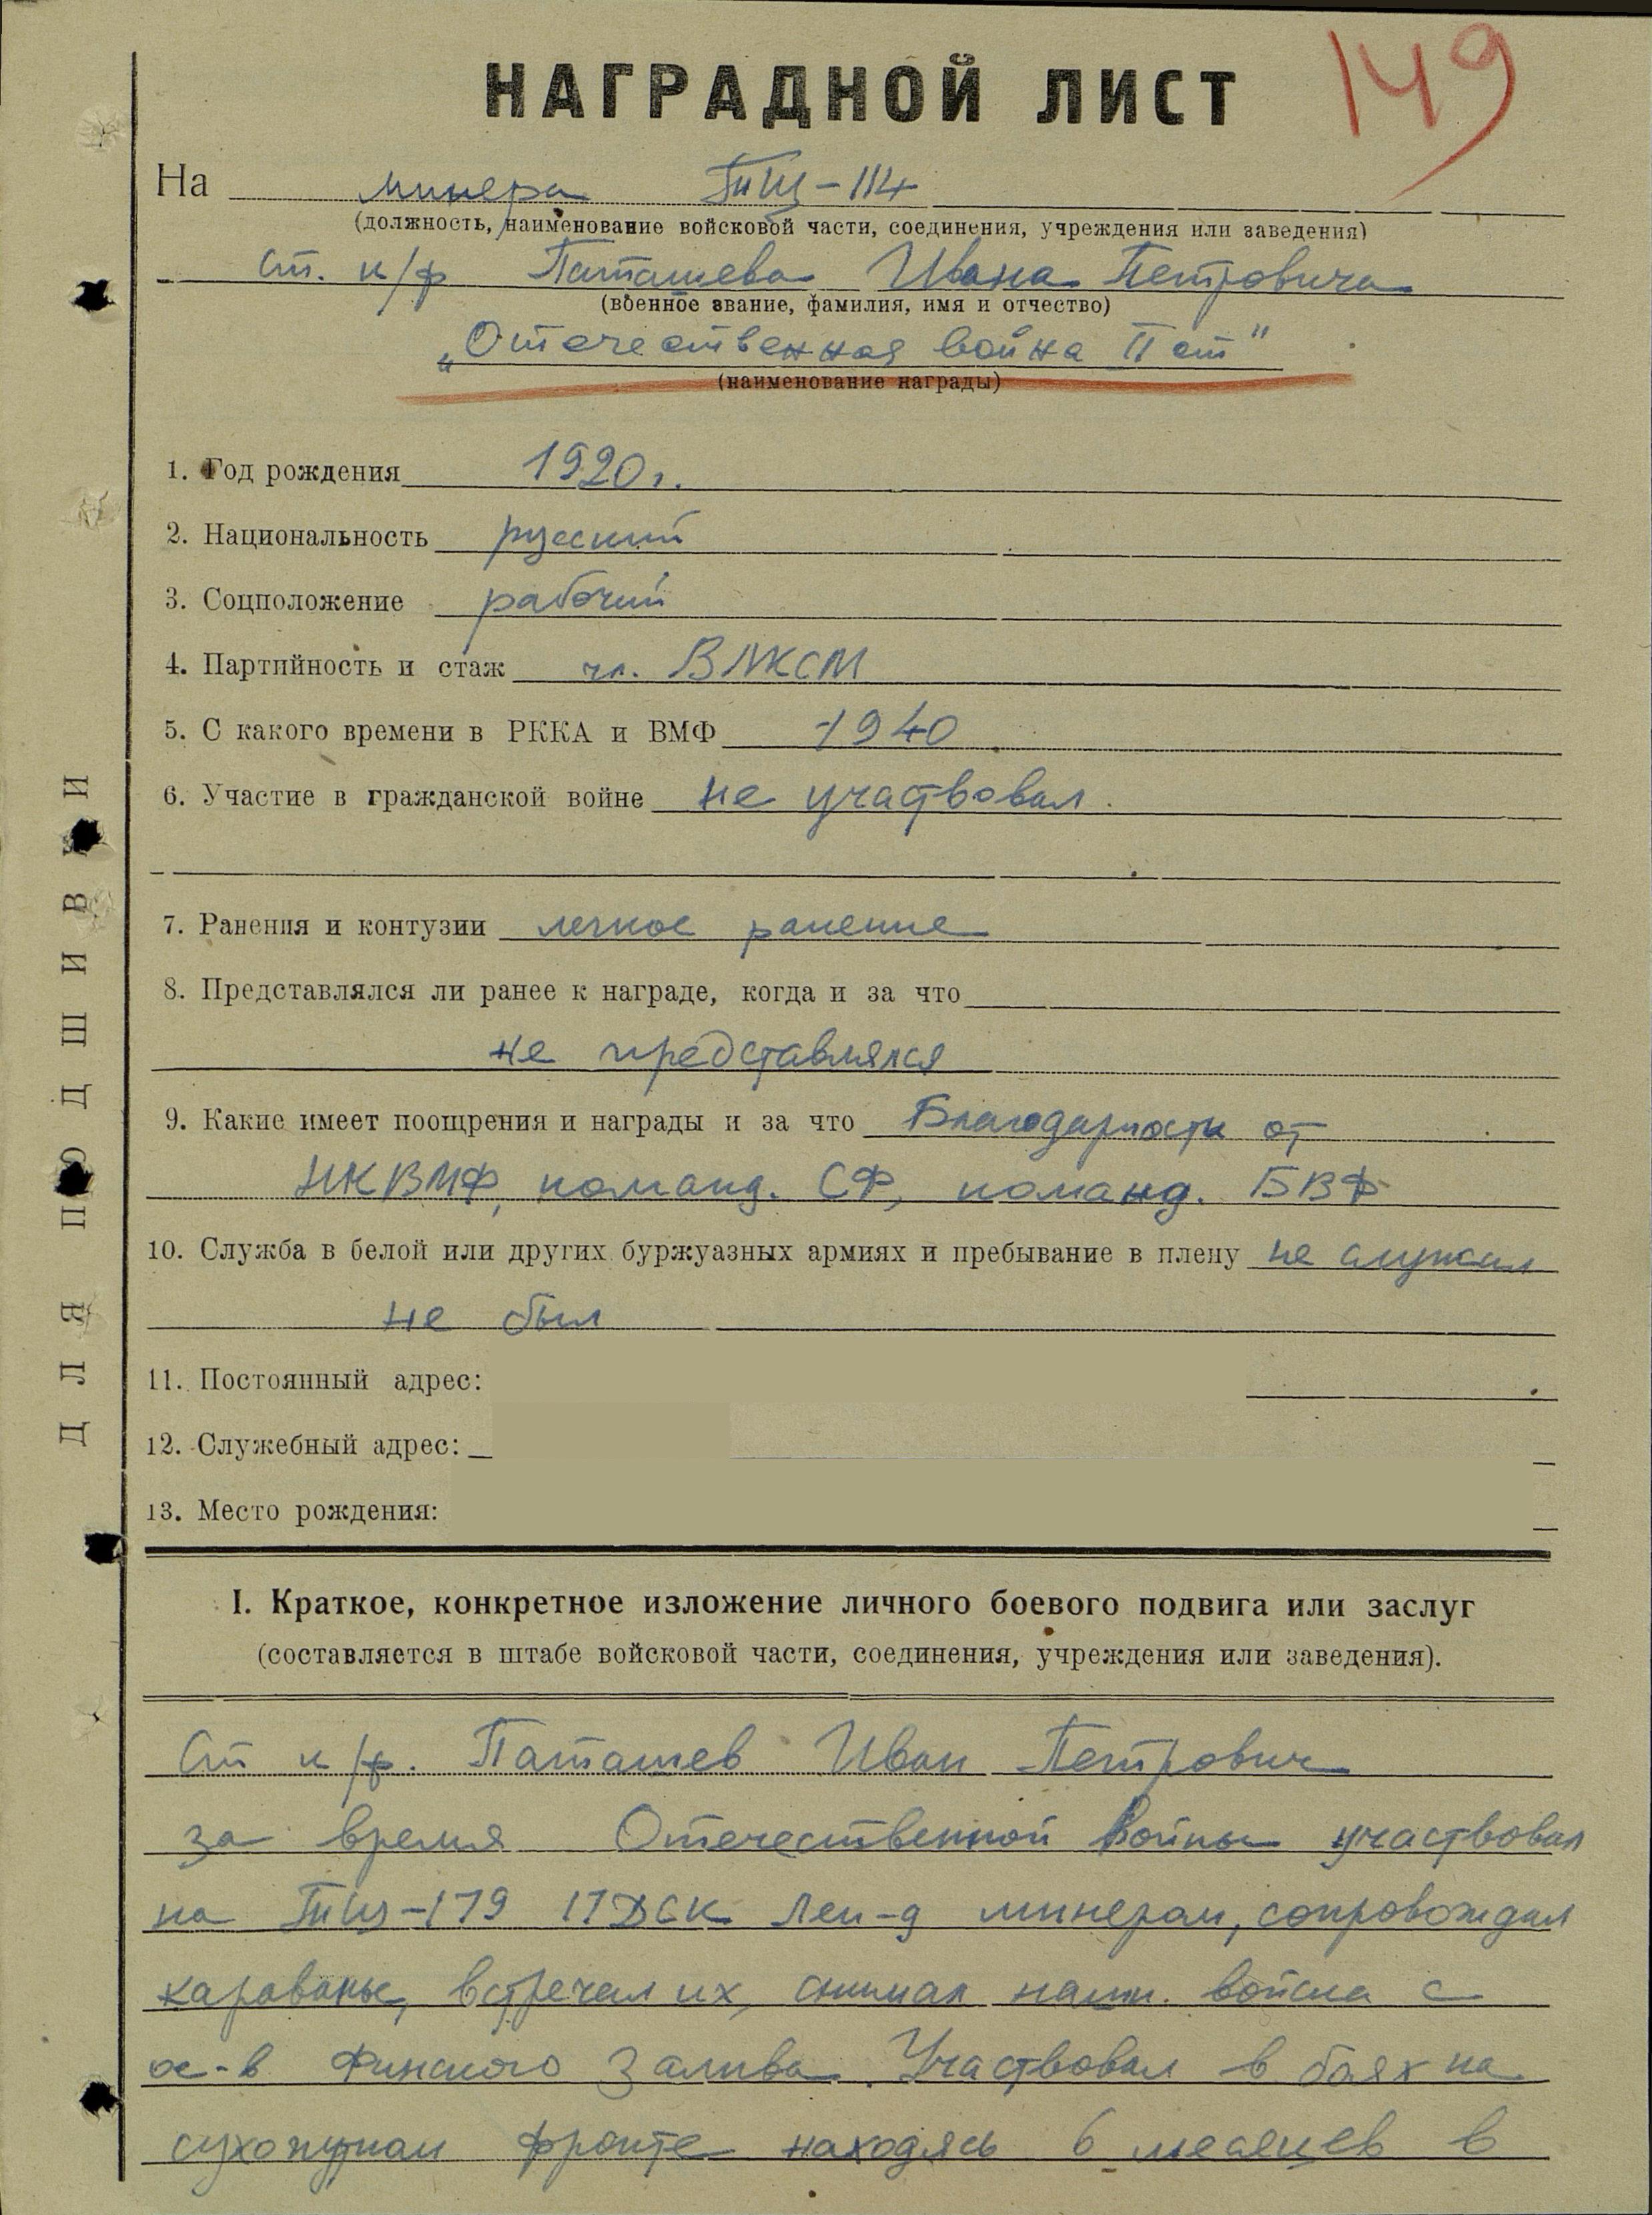 149
НАГРАДНОЙ ЛИСТ
На минера ТЩ-114
(должность, наименование войсковой части, соединения, учреждения или заведения)
ст. к/ф Паташева Ивана Петровича
(военное звание, фамилия, имя и отчество)
„Отечественная война II ст"
(наименование награды)
1. Год рождения 1920 г.
2. Национальность русский
3. Соцположение рабочий
4. Партийность и стаж чл. ВЛКСМ
5. С какого времени в РККА и ВМФ 1940
6. Участие в гражданской войне не участвовал.
7. Ранения и контузии легкое ранение
8. Представлялся ли ранее к награде, когда и за что
не представлялся
9. Какие имеет поощрения и награды и за что Благодарности от
НКВМФ, команд. СФ, команд. БВФ
10. Служба в белой или других буржуазных армиях и пребывание в плену не служил
не был
11. Постоянный адрес:
12. Служебный адрес:
13. Место рождения:
I. Краткое, конкретное изложение личного боевого подвига или заслуг
(составляется в штабе войсковой части, соединения, учреждения или заведения).
Ст к/ф. Паташев Иван Петрович
за время Отечественной Войны участвовал
на ТЩ-179 Лен-д минером, сопровождал
караваны, встречал их, снимал наши войска с
ос-в Финского Залива. Участвовал в боях на
сухопутном фронте находясь 6 месяцев в
ДЛЯ ПОДШИВКИ